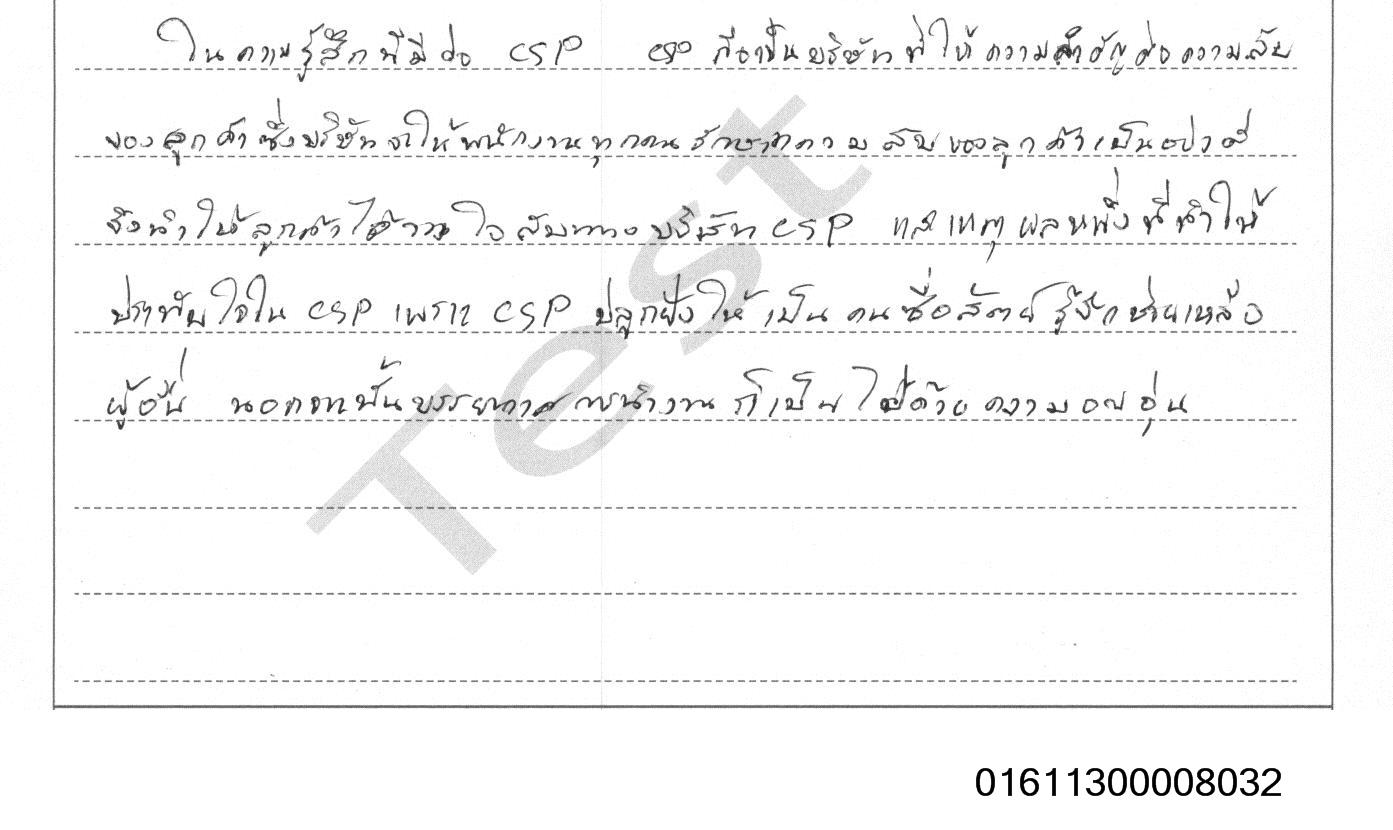 ในความรู้สึกที่มีต่อ CSP CSP ถือเป็นบริษัทที่ให้ความสำคัญต่อความลับ
ของลูกค้าซึ่งบริษัทจะให้พนักงานทุกคนรักษาความลับของลูกค้าเป็นอย่างดี
จึงทำให้ลูกค้าไว้วางใจกับทางบริษัท CSP และเหตุผลหนึ่งที่ทำให้
ประทับใจใน CSP เพราะ CSP ปลูกฝังให้เป็นคนซื่อสัตย์รู้จักช่วยเหลือ
ผู้อื่น นอกจากนั้นบรรยากาศการทำงานก็เป็นไปด้วยความอบอุ่น
Test
01611300008032